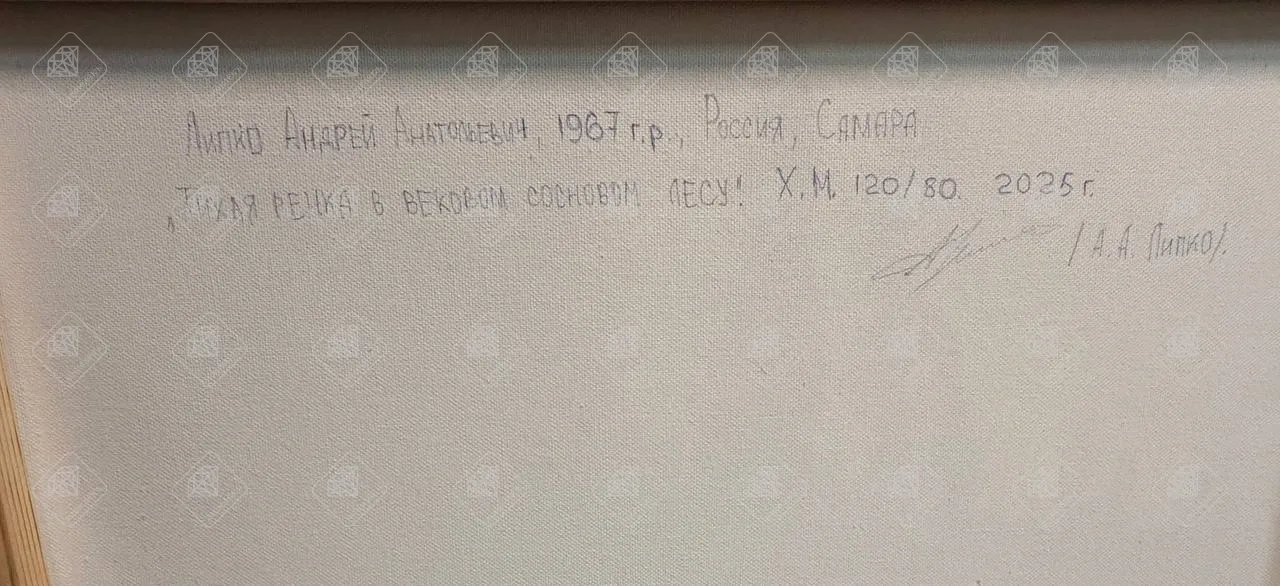 Липко Андрей Анатольевич, 1967 г.р., Россия, Самара
„Тихая речка в вековом сосновом лесу! Х.М. 120/80. 2025 г.
/А.А. Липко/.